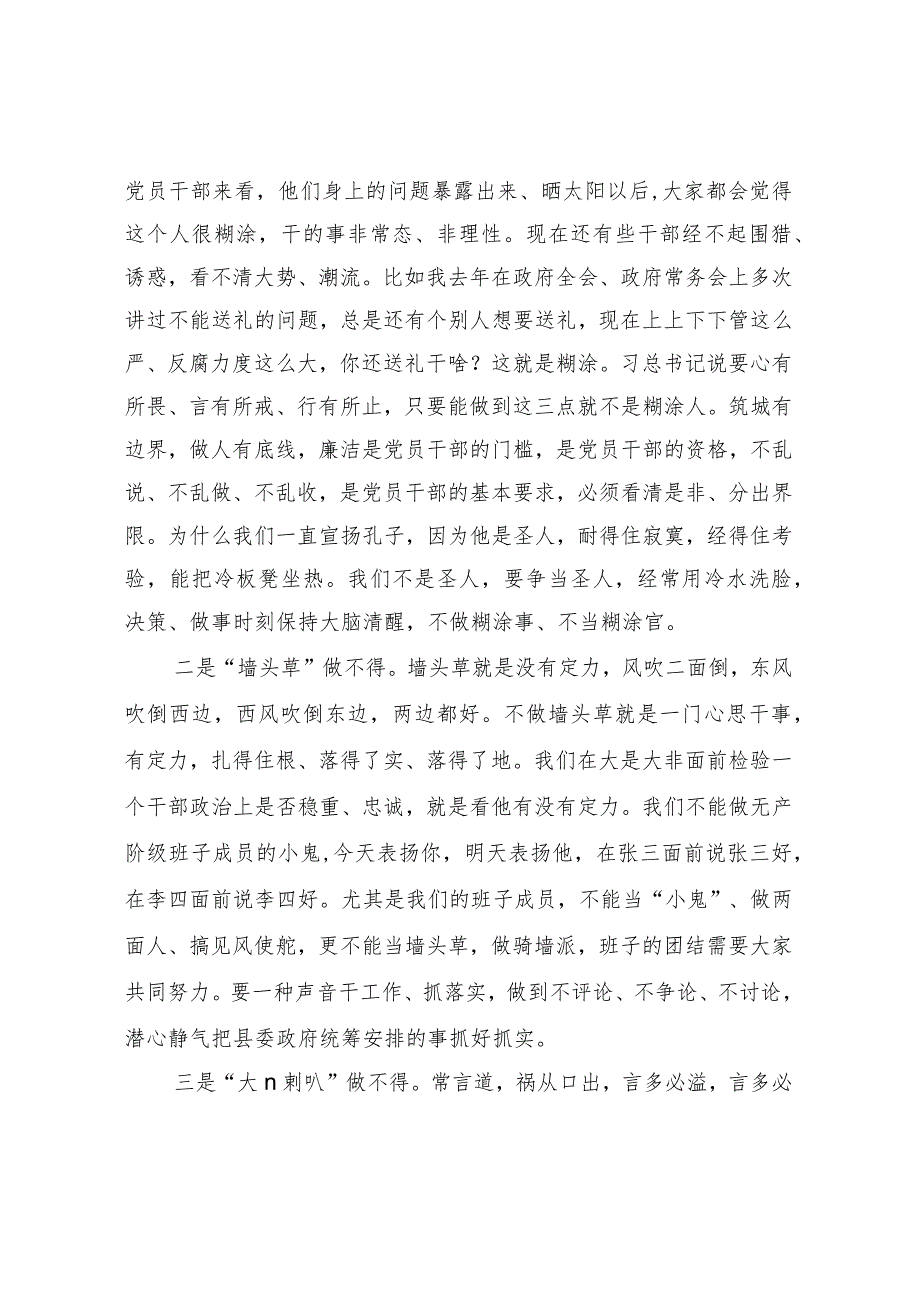 党员干部来看，他们身上的问题暴露出来、晒太阳以后,大家都会觉得
这个人很糊涂，干的事非常态、非理性。现在还有些干部经不起围猎、
诱惑，看不清大势、潮流。比如我去年在政府全会、政府常务会上多次
讲过不能送礼的问题，总是还有个别人想要送礼，现在上上下下管这么
严、反腐力度这么大，你还送礼干啥？这就是糊涂。习总书记说要心有
所畏、言有所戒、行有所止，只要能做到这三点就不是糊涂人。筑城有
边界，做人有底线，廉洁是党员干部的门槛，是党员干部的资格，不乱
说、不乱做、不乱收，是党员干部的基本要求，必须看清是非、分出界
限。为什么我们一直宣扬孔子，因为他是圣人，耐得住寂寞，经得住考
验，能把冷板凳坐热。我们不是圣人，要争当圣人，经常用冷水洗脸，
决策、做事时刻保持大脑清醒，不做糊涂事、不当糊涂官。
二是“墙头草”做不得。墙头草就是没有定力，风吹二面倒，东风
吹倒西边，西风吹倒东边，两边都好。不做墙头草就是一门心思干事，
有定力，扎得住根、落得了实、落得了地。我们在大是大非面前检验一
个干部政治上是否稳重、忠诚，就是看他有没有定力。我们不能做无产
阶级班子成员的小鬼,今天表扬你，明天表扬他，在张三面前说张三好，
在李四面前说李四好。尤其是我们的班子成员，不能当“小鬼”、做两
面人、搞见风使舵，更不能当墙头草，做骑墙派，班子的团结需要大家
共同努力。要一种声音干工作、抓落实，做到不评论、不争论、不讨论，
潜心静气把县委政府统筹安排的事抓好抓实。
三是“大n喇叭”做不得。常言道，祸从口出，言多必溢，言多必